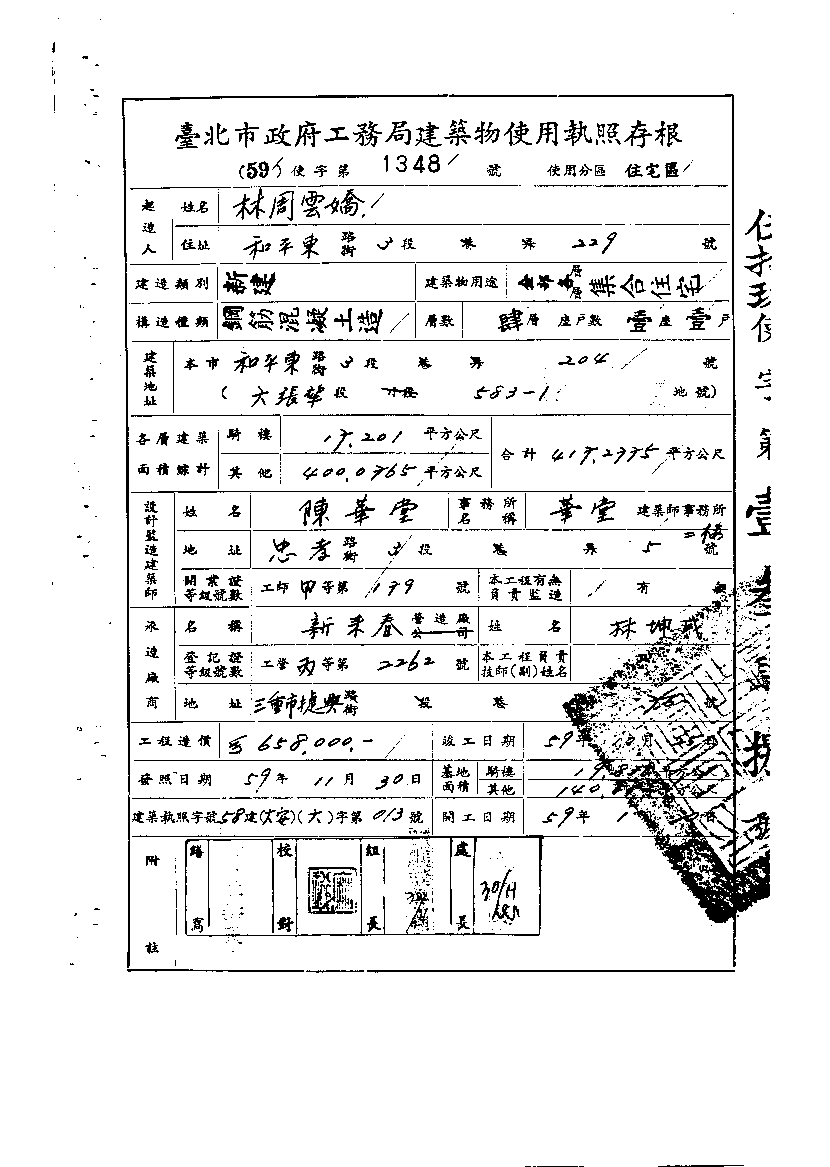 臺北市政府工務局建築物使用執照存根
(59) 使字第 1348 號 使用分區 住宅區
起造人 姓名 林周雲嬌
住址 和平東 路街 3 段 巷 弄 229 號
建造類別 新建 建築物用途 層層 集合住宅
構造種類 鋼筋混凝土造 層數 肆層 座戶數 壹座 壹戶
建築地址 本市 和平東 路街 3 段 巷 弄 204 號
( 大張犂 段 小段 583-1 地號)
各層建築面積綜計 騎樓 17.201 平方公尺 合計 417.2775 平方公尺
其他 400.0765 平方公尺
設計監造建築師 姓名 陳華堂 事務所名稱 華堂 建築師事務所
地址 忠孝 路街 3 段 巷 弄 5 號 二樓
開業證等級號數 工師甲等第 199 號 本工程有無負責監造 有 無
承造廠商 名稱 新来春 營造廠公司 姓名 林坤
登記證等級號數 工營丙等第 2262 號 本工程負責技師(副)姓名
地址 三重市捷興 路街 段 巷 號
工程造價 658,000.- 竣工日期 59年 10月 日
發照日期 59年 11月 30日 基地面積 騎樓 平方公尺
其他 140. 平方公尺
建築執照字號 58建(大安)(六)字第 013 號 開工日期 59年 1 日
附註 繕寫 校對 組長 處長
30/11
使字第壹